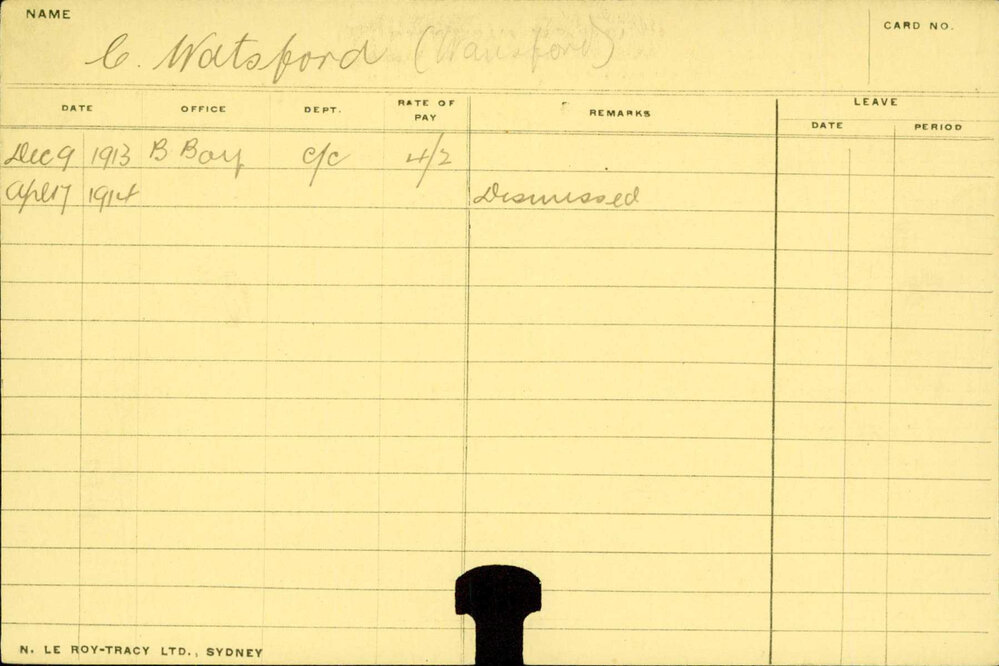 NAME
CARD NO.
C. Watsford (Wansford)
DATE OFFICE DEPT. RATE OF PAY REMARKS LEAVE
DATE PERIOD
Dec 9 1913 B Boy c/c 4/2
Apl 17 1914 Dismissed
N. LE ROY-TRACY LTD., SYDNEY